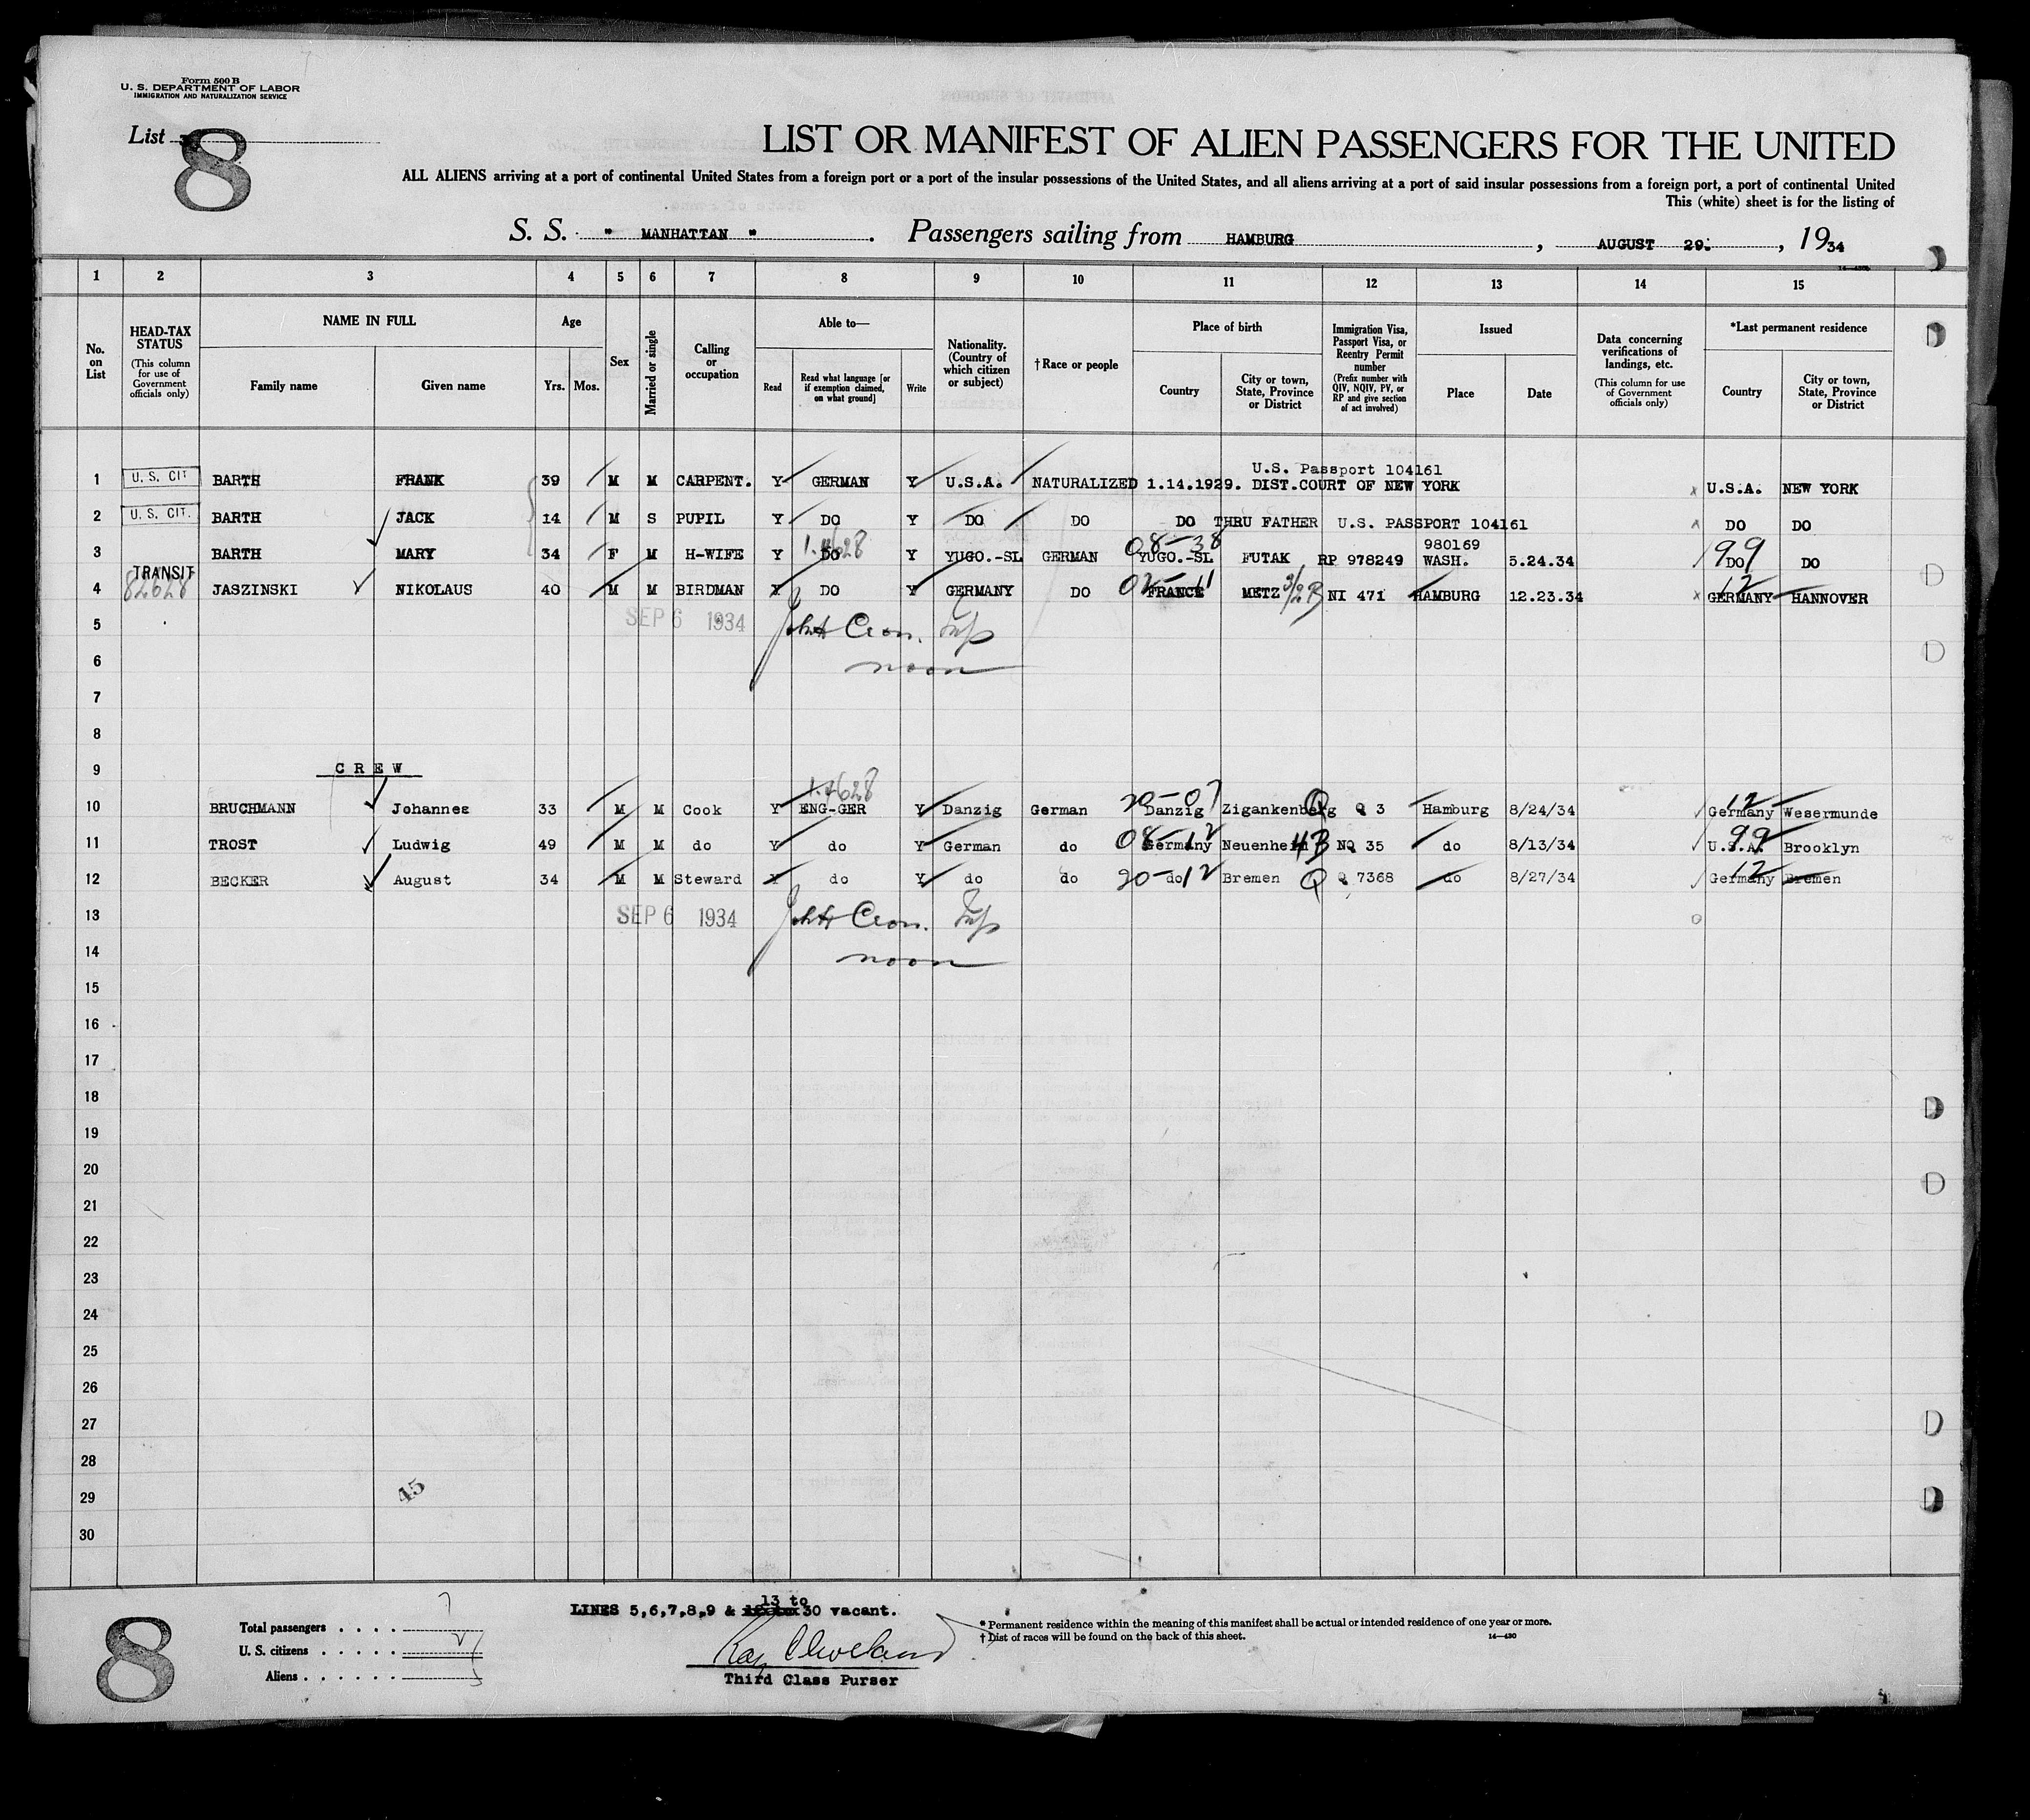 Form 500 B
U. S. DEPARTMENT OF LABOR
IMMIGRATION AND NATURALIZATION SERVICE
List 8
LIST OR MANIFEST OF ALIEN PASSENGERS FOR THE UNITED
ALL ALIENS arriving at a port of continental United States from a foreign port or a port of the insular possessions of the United States, and all aliens arriving at a port of said insular possessions from a foreign port, a port of continental United
This (white) sheet is for the listing of
S. S. " MANHATTAN " . Passengers sailing from HAMBURG , AUGUST 29. , 1934
1 2 3 4 5 6 7 8 9 10 11 12 13 14 15
No. on List
HEAD-TAX STATUS (This column for use of Government officials only)
NAME IN FULL Family name Given name
Age Yrs. Mos.
Sex
Married or single
Calling or occupation
Able to— Read Read what language [or if exemption claimed, on what ground] Write
Nationality. (Country of which citizen or subject)
†Race or people
Place of birth Country City or town, State, Province or District
Immigration Visa, Passport Visa, or Reentry Permit number (Prefix number with QIV, NQIV, PV, or RP and give section of act involved)
Issued Place Date
Data concerning verifications of landings, etc. (This column for use of Government officials only)
*Last permanent residence Country City or town, State, Province or District
U.S. Passport 104161
1 U. S. CIT. BARTH FRANK 39 M M CARPENT. Y GERMAN Y U.S.A. NATURALIZED 1.14.1929. DIST.COURT OF NEW YORK x U.S.A. NEW YORK
2 U. S. CIT. BARTH JACK 14 M S PUPIL Y DO Y DO DO DO THRU FATHER U.S. PASSPORT 104161 DO DO
08-38 980169
3 BARTH MARY 34 F M H-WIFE Y DO Y YUGO.-SL GERMAN YUGO.-SL FUTAK RP 978249 WASH. 5.24.34 99 DO DO
TRANSIT
4 82628 JASZINSKI NIKOLAUS 40 M M BIRDMAN Y DO Y GERMANY DO FRANCE METZ NI 471 HAMBURG 12.23.34 x 12 GERMANY HANNOVER
5 SEP 6 1934
6 noon
7
8
9 CREW
10 BRUCHMANN Johannes 33 M M Cook Y ENG-GER Y Danzig German 20-07 Danzig Zigankenberg Q 3 Hamburg 8/24/34 12 Germany Wesermunde
11 TROST Ludwig 49 M M do Y do Y German do 08-12 Germany Neuenheim 4B NQ 35 do 8/13/34 99 U.S.A. Brooklyn
12 BECKER August 34 M M Steward Y do Y do do 20-12 do Bremen Q 7368 do 8/27/34 12 Germany Bremen
13 SEP 6 1934
14 noon
15
16
17
18
19
20
21
22
23
24
25
26
27
28
29 45
30
13 to
LINES 5,6,7,8,9 & 30 vacant.
8
Total passengers
U. S. citizens
Aliens
Ray Cleveland
Third Class Purser
* Permanent residence within the meaning of this manifest shall be actual or intended residence of one year or more.
† List of races will be found on the back of this sheet.
14—430